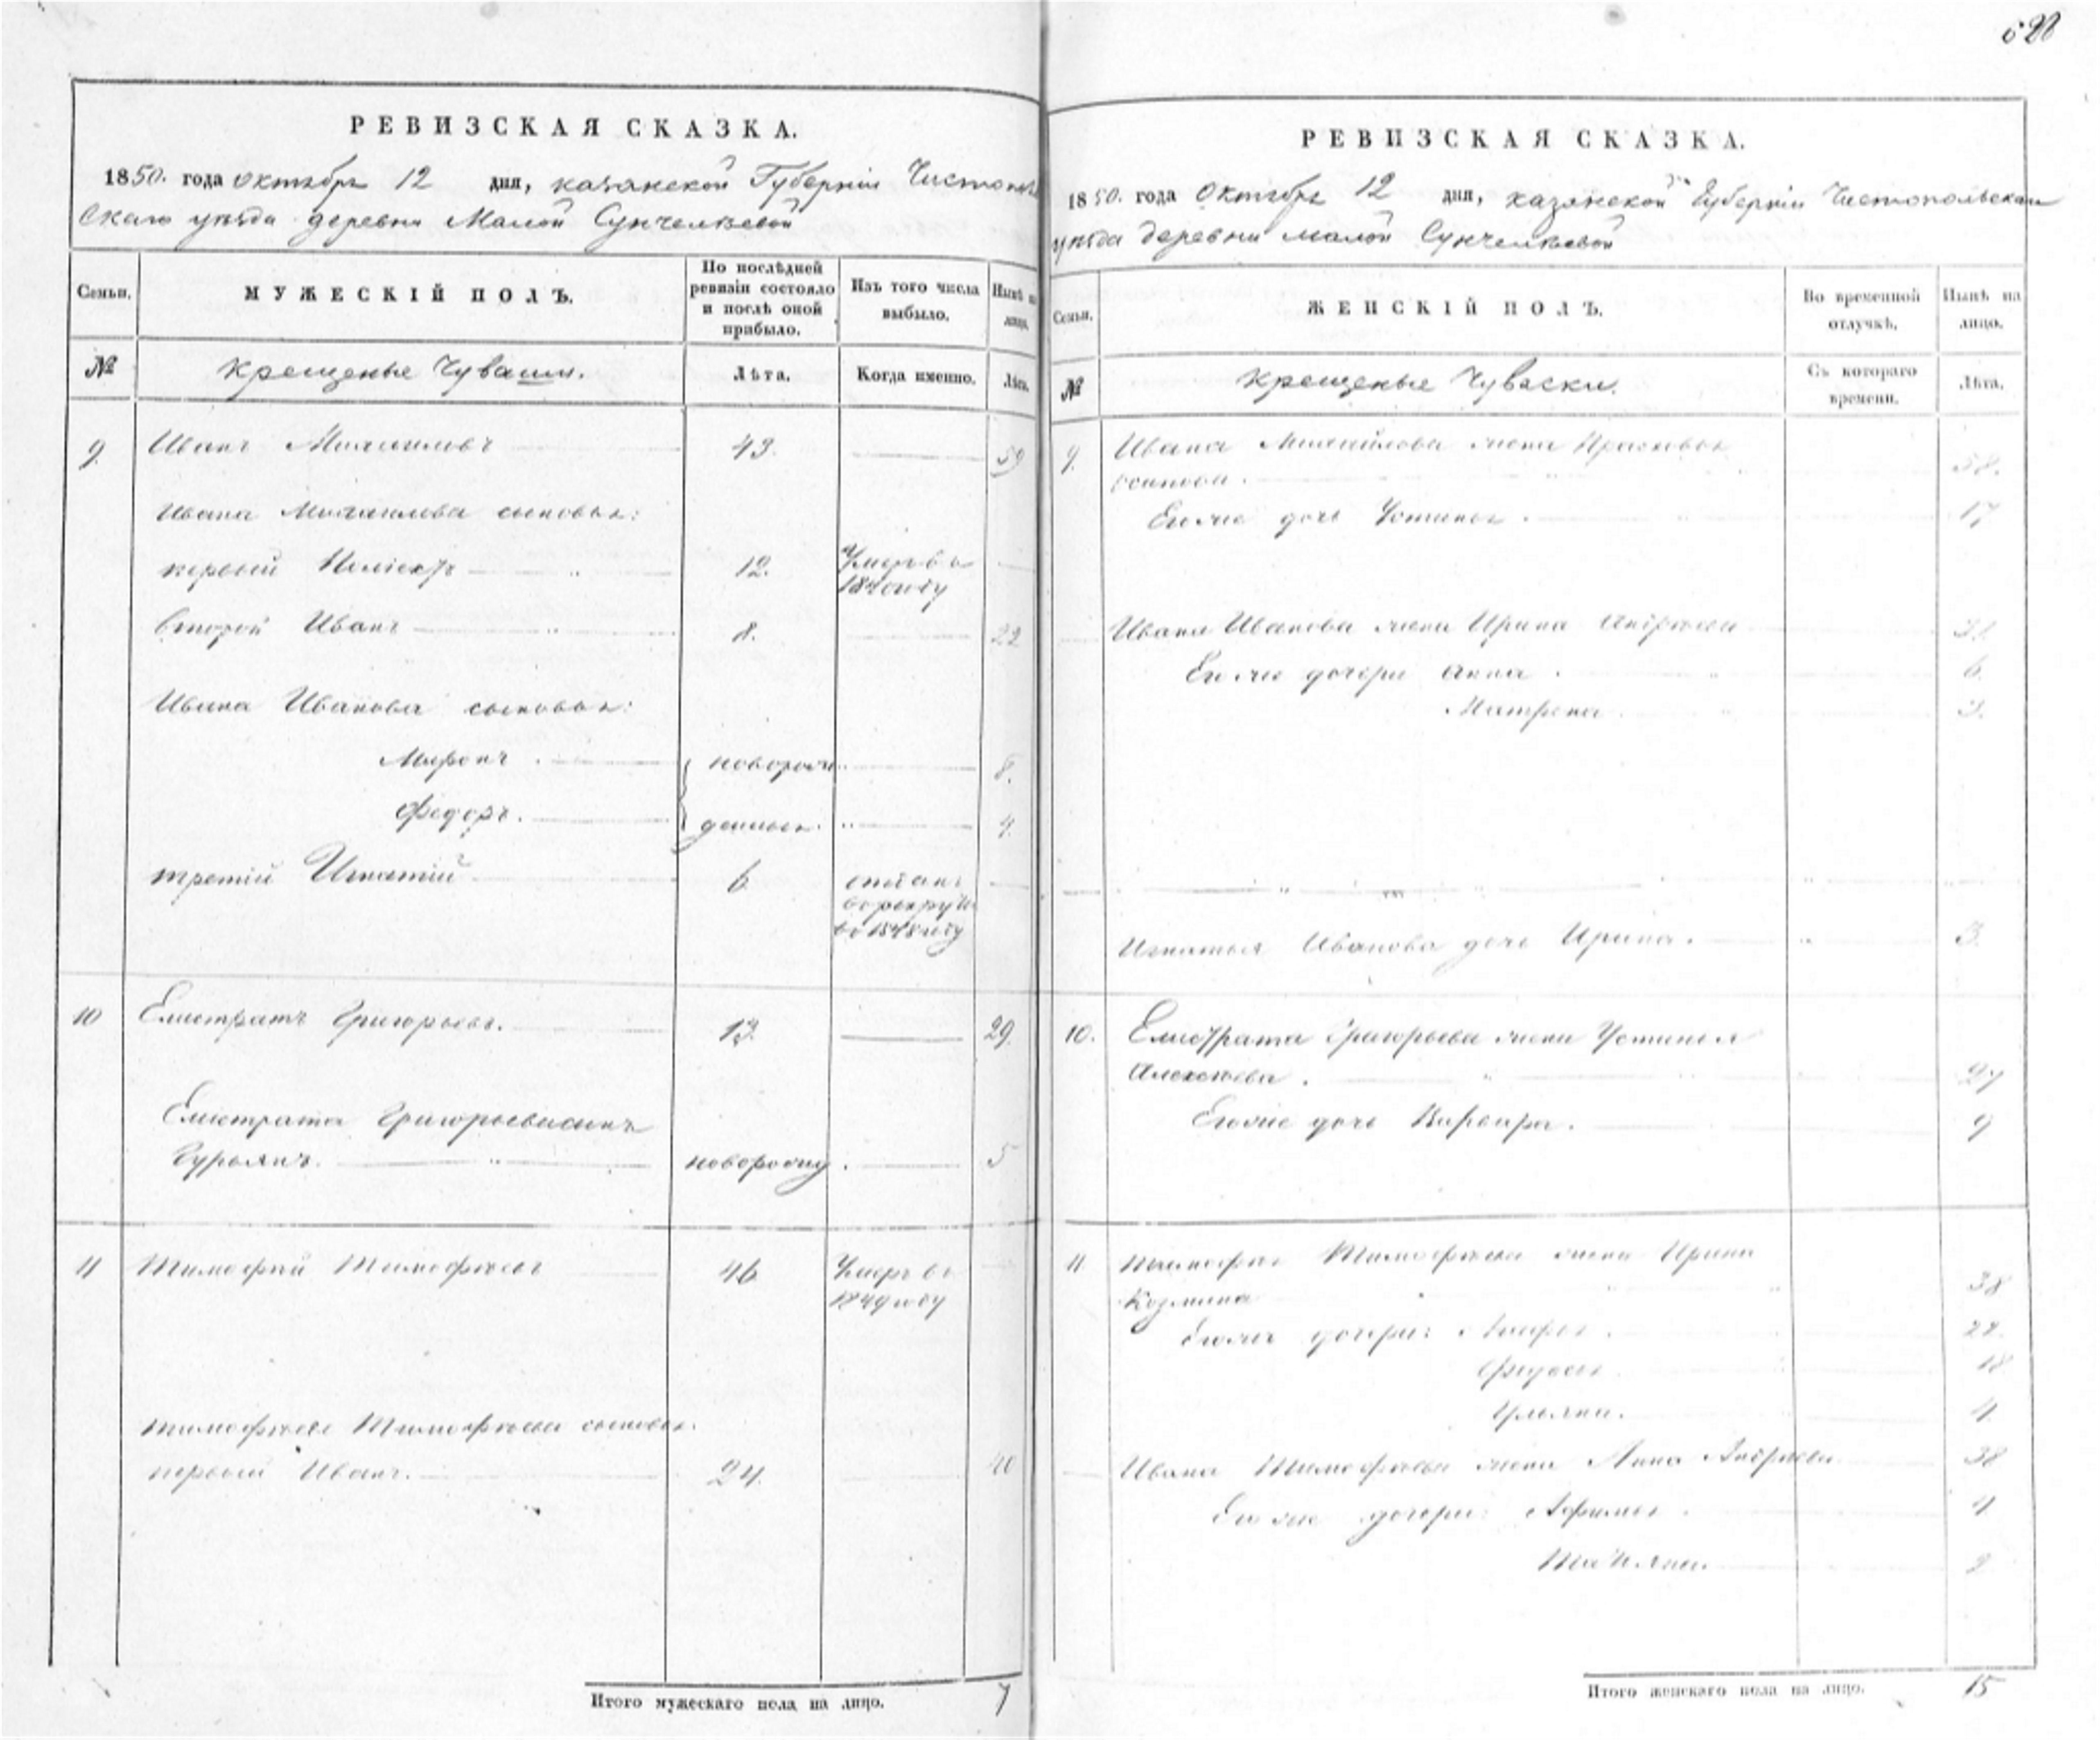 РЕВИЗСКАЯ СКАЗКА.
1850. года октября 12 дня, казанской Губерніи Чистополь
скаго уѣзда деревни Малой Сунчелѣевой
Семьи. МУЖЕСКІЙ ПОЛЪ. По послѣдней ревизіи состояло и послѣ оной прибыло. Изъ того числа выбыло. Нынѣ на лицо.
№ крещеные Чуваши. Лѣта. Когда именно. Лѣта.
9. Иванъ Михайловъ 43. 59
Ивана Михайлова сыновья:
первый 12. Умеръ въ
184 году
второй Иванъ 8. 22
Ивана Иванова сыновья:
Миронъ новорож 8.
Федоръ. денные 4.
третій Игнатій 6 отданъ
въ рекруты
въ 1848 году
10 Елистратъ Григорьевъ. 13. 29.
Елистрата Григорьева сынъ
Гурьянъ. новорожд. 5
11 Тимофей Тимофеевъ 46 Умеръ въ
1849 году
Тимофея Тимофеева сыновья.
первый Иванъ. 24. 40
Итого мужескаго пола на лицо. 7
РЕВИЗСКАЯ СКАЗКА.
1850. года Октября 12 дня, казанской Губерніи Чистопольскаго
уѣзда деревни малой Сунчелѣевой
Семьи. ЖЕНСКІЙ ПОЛЪ. Во временной отлучкѣ. Нынѣ на лицо.
№ крещеные Чувашки. Съ котораго времени. Лѣта.
9. Ивана Михайлова жена Прасковья
Осипова. 58.
Его же дочь Устинья. 17
Ивана Иванова жена Ирина
Его же дочери Анна. 6.
Матрена 3.
Игнатья Иванова дочь Ирина. 3.
10. Елистрата Григорьева жена Устинья
Алексеева. 27
Его же дочь Варвара. 9
11 Тимофея Тимофеева жена Ирина
Козмина 38
Его же дочери: 22.
Федосья 18
Ульяна. 4
Ивана Тимофеева жена Анна Андреева 38
Его же дочери: Афимья 4
Татьяна. 2
Итого женскаго пола на лицо. 15